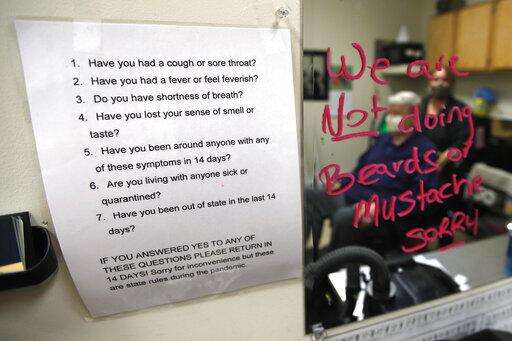 1. Have you had a cough or sore throat?
2. Have you had a fever or feel feverish?
3. Do you have shortness of breath?
4. Have you lost your sense of smell or
taste?
5. Have you been around anyone with any
of these symptoms in 14 days?
6. Are you living with anyone sick or
quarantined?
7. Have you been out of state in the last 14
days?
IF YOU ANSWERED YES TO ANY OF
THESE QUESTIONS PLEASE RETURN IN
14 DAYS! Sorry for inconvenience but these
are state rules during the pandemic.
We are
Not doing
Beards or
Mustache
SORRY